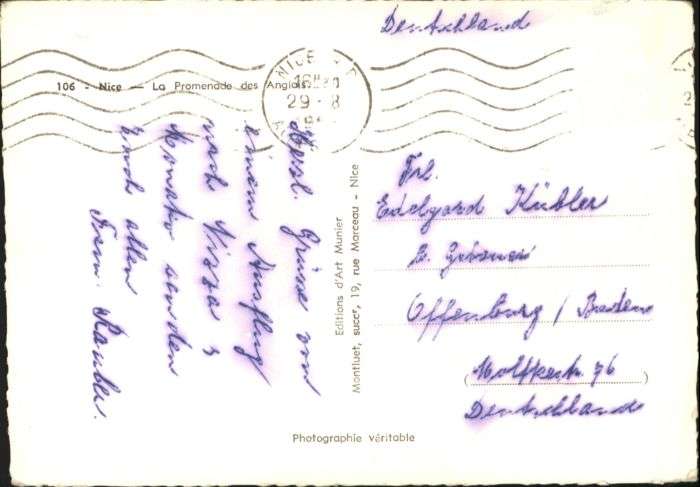 Deutschland
106 - Nice — La Promenade des Anglais.
NICE
29 - 8
Herzl. Grüsse von
einem Ausflug
nach Nizza &
Monako senden
Euch allen
Fam.
Editions d'Art Munier
Montluet, succr, 19, rue Marceau - Nice
Frl.
Edelgard Kübler
Offenburg / Baden
(Moltkestr. 76)
Deutschland
Photographie véritable